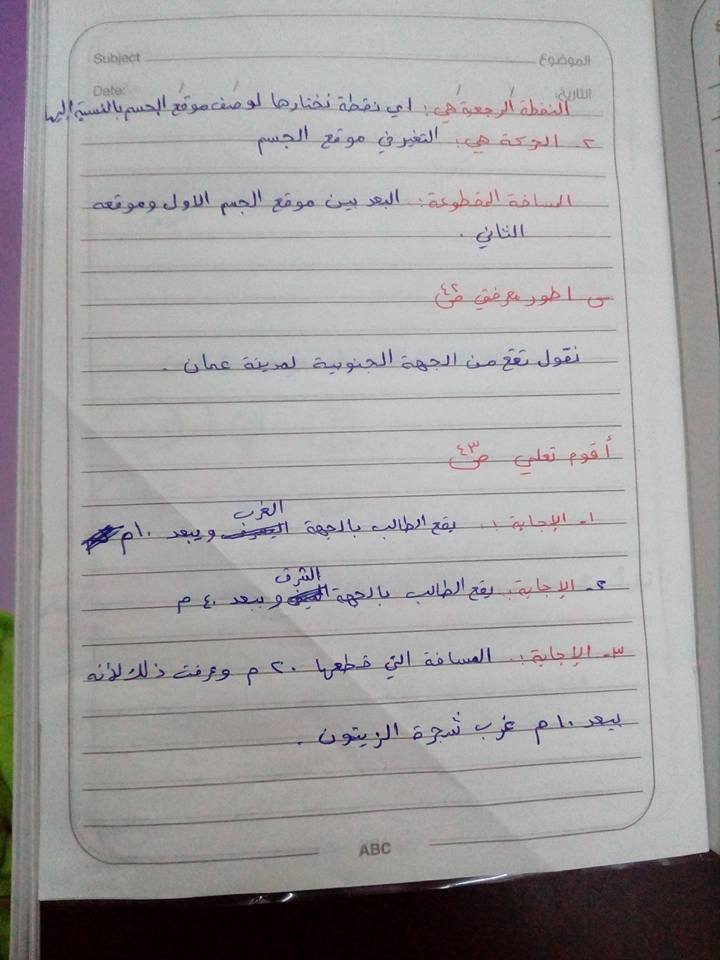 Subject الموضوع
Date: التاريخ:
النقطة الرجعية هي: اي نقطة نختارها لوصف موقع الجسم بالنسبة إليها
٢- الحركة هي: التغير في موقع الجسم
المسافة المقطوعة: البعد بين موقع الجسم الاول وموقعه
الثاني.
اطور معرفتي ص٤٢
نقول تقع من الجهة الجنوبية لمدينة عمان.
أقوم تعلمي ص٤٣
١- الإجابة: يقع الطالب بالجهة الغرب ويبعد ١٠م
٢- الإجابة: يقع الطالب بالجهة الشرق ويبعد ٤٠ م
٣- الإجابة: المسافة التي قطعها ٢٠ م وعرفت ذلك لأنه
يبعد ١٠م غرب شجرة الزيتون.
ABC